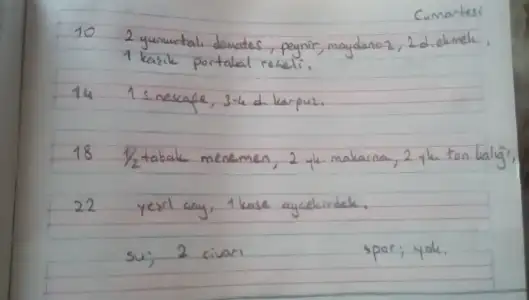 Cumartesi
10 2 yumurtalı domates, peynir, maydanoz, 2 d. ekmek,
1 kaşık portakal reçeli.
14 1 s. nescafe, 3-4 d. karpuz.
18 1/2 tabak menemen, 2 yk makarna, 2 yk ton balığı,
22 yeşil çay, 1 kase ayçekirdek.
su; 2 civarı spor; yok.